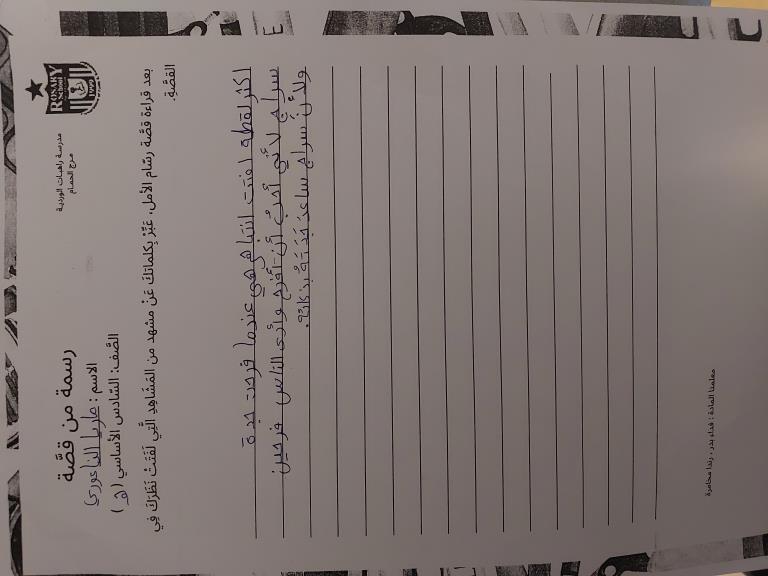 ROSARY
School
1993
مدرسة راهبات الوردية
مرج الحمام
رسمة من قصَّة
الاسم: ماريا الناعوري
الصَّف: السَّادس الأساسي (هـ)
بعد قراءة قصَّة رسَّام الأمل، عَبِّرْ بِكلماتكَ عَنْ مشهد من المَشَاهِدِ الَّتِي لَفَتَتْ نَظَرَكَ فِي
القصَّةِ.
اكثر لقطه لفتت انتباهي هي عندما فرحت جدة
سراج لأني أحب أن أفرح وأرى الناس فرحين
ولأن سراج ساعد جَدَتَهُ بذكائه.
معلمتا المادة: فداء بدر، رندا محامرة
E